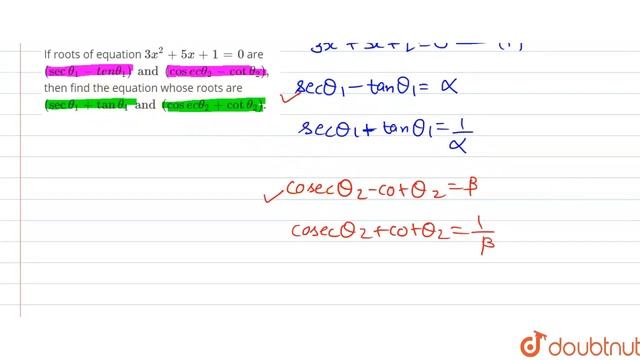 If roots of equation 3x² + 5x + 1 = 0 are
(sec θ₁ − tenθ₁) and (cos ecθ₂ − cot θ₂),
then find the equation whose roots are
(sec θ₁ + tan θ₁ and (cos ecθ₂ + cot θ₂).
secθ₁ − tanθ₁ = α
secθ₁ + tanθ₁ = 1/α
cosecθ₂ − cotθ₂ = β
cosecθ₂ + cotθ₂ = 1/β
doubtnut